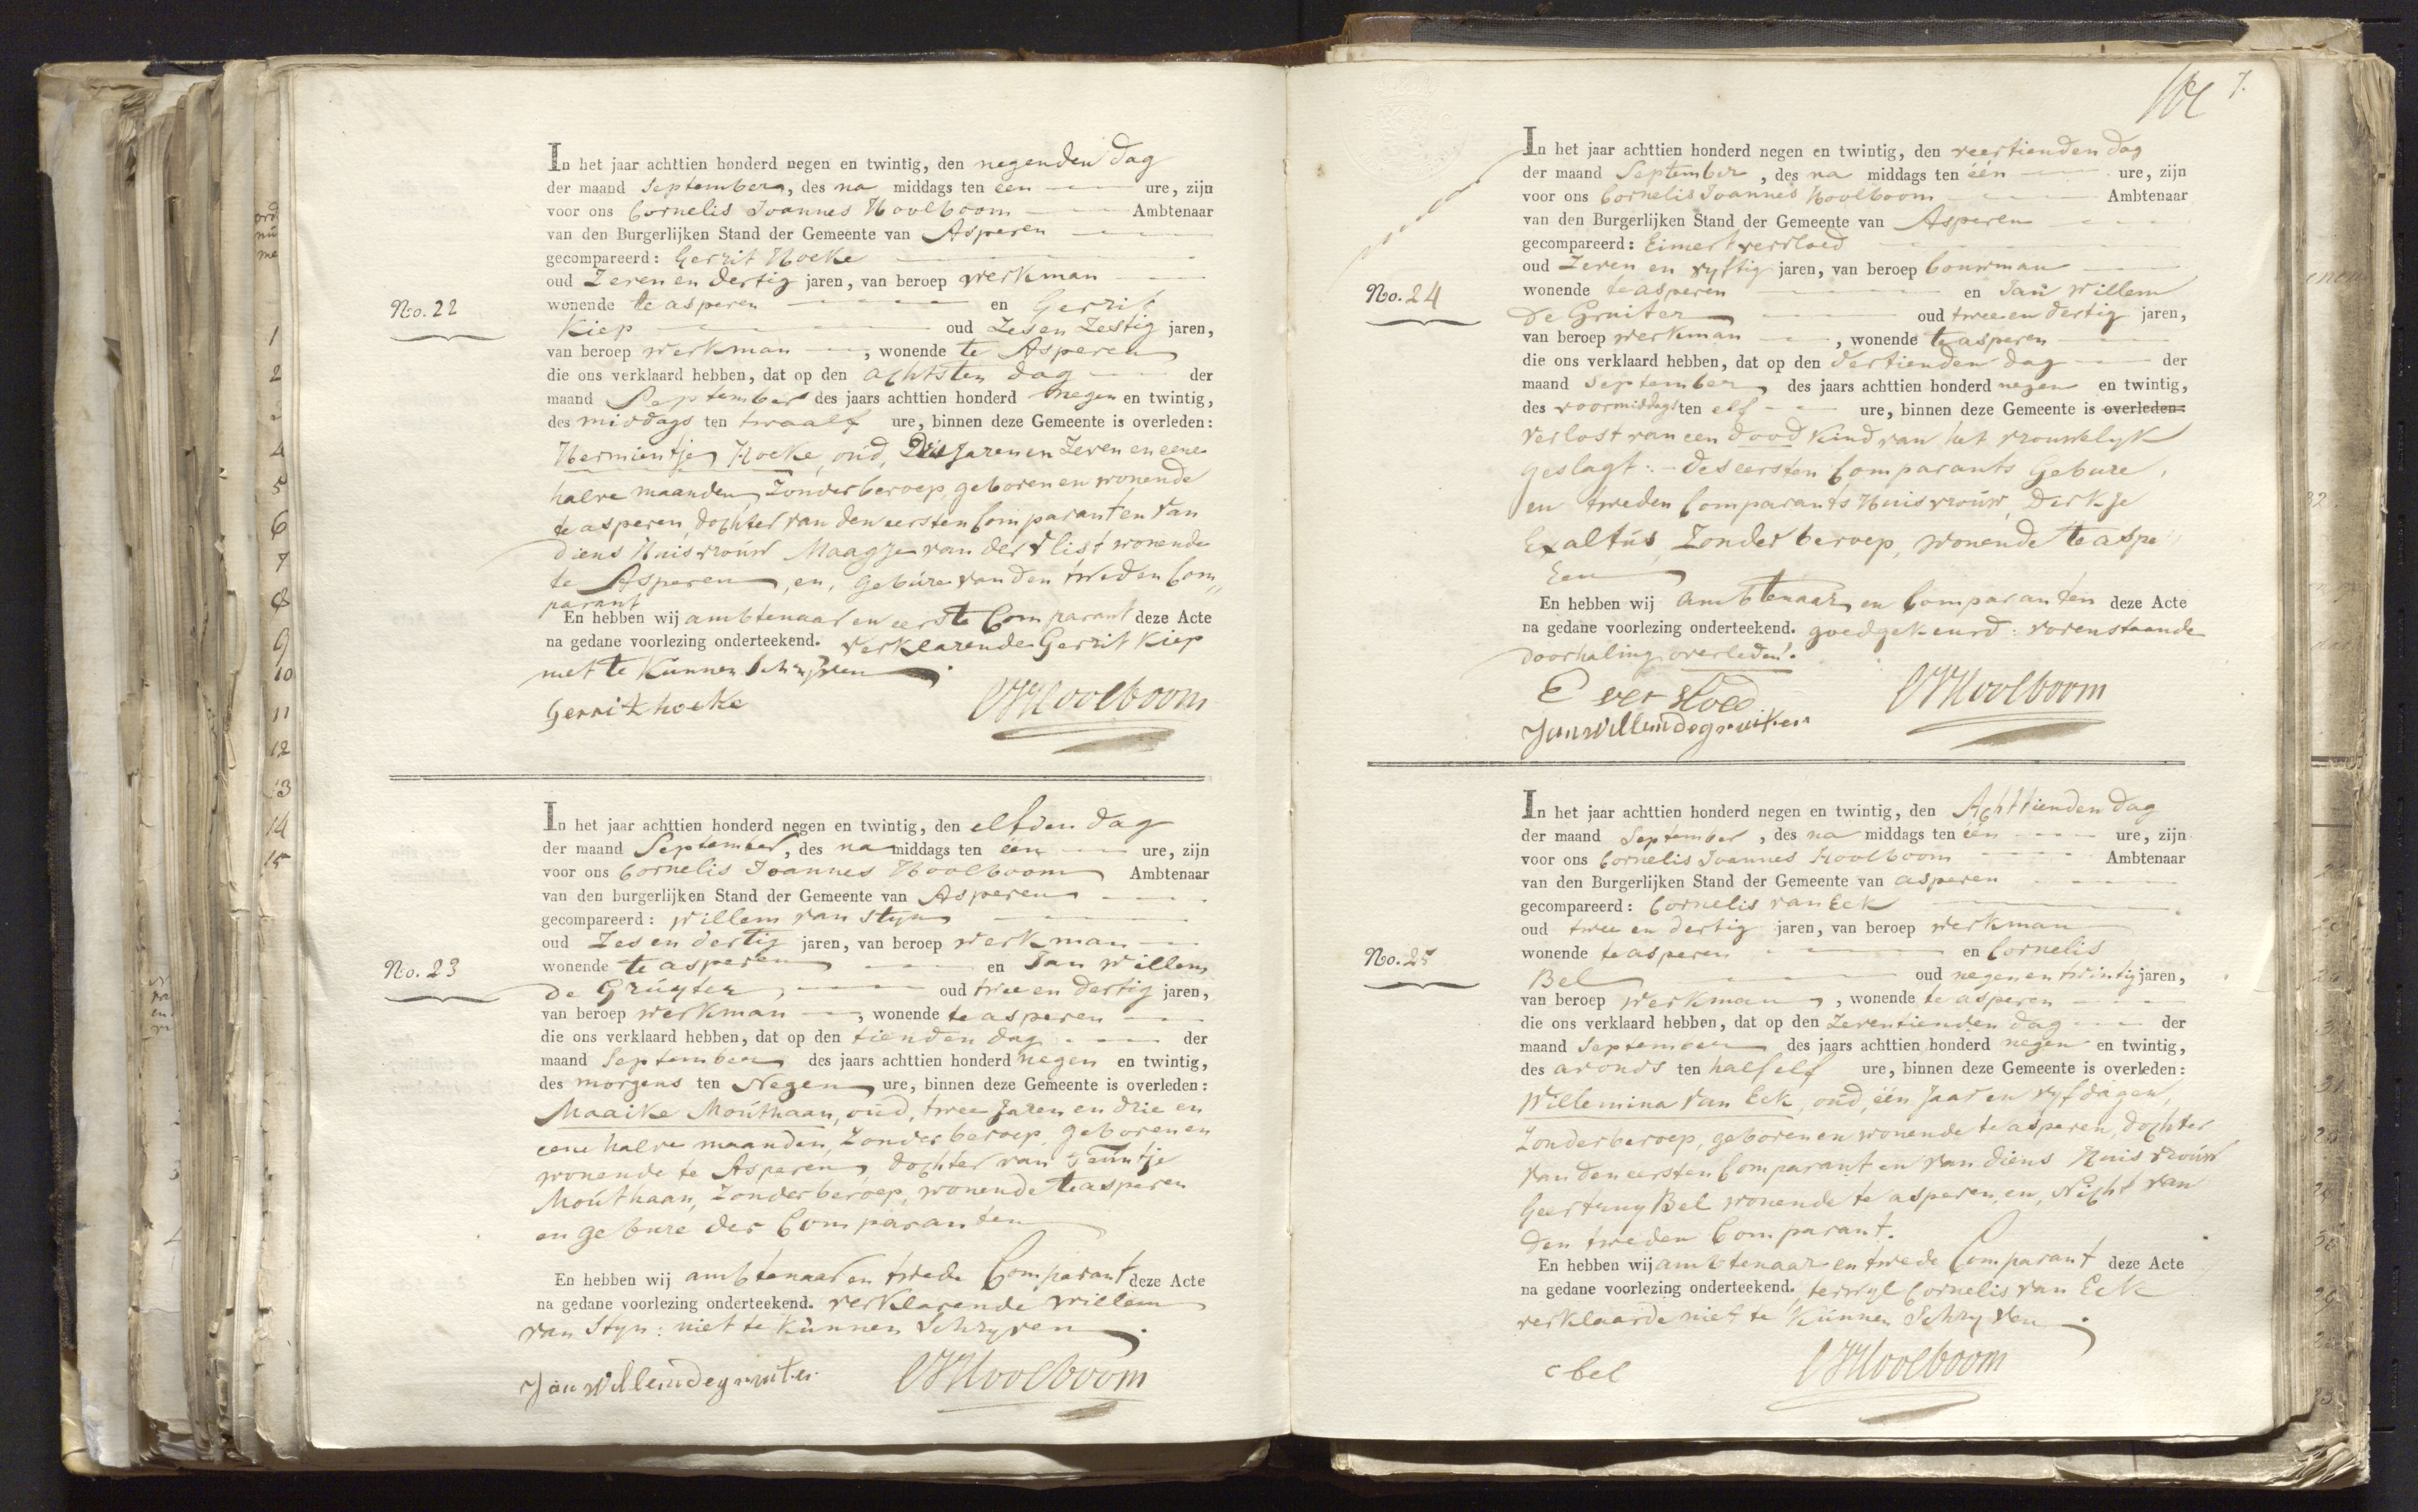 In het jaar achttien honderd negen en twintig, den negenden dag
der maand September, des na middags ten één ure, zijn
voor ons Cornelis Joannes Hoolboom Ambtenaar
van den Burgerlijken Stand der Gemeente van Asperen
gecompareerd: Gerrit Hoeke
oud Zeven en dertig jaren, van beroep werkman
wonende te asperen en Gerrit
No. 22
Kiep oud Zes en Zestig jaren,
van beroep werkman, wonende te Asperen
die ons verklaard hebben, dat op den achtsten dag der
maand September des jaars achttien honderd negen en twintig,
des middags ten twaalf ure, binnen deze Gemeente is overleden:
Hermientje Hoeke, oud, Drie Jaren en Zeven en eene
halve maanden, Zonder beroep, geboren en wonende
te asperen, dochter van den eersten Comparant en van
diens Huisvrouw Maagje van der Vlist wonende
te Asperen, en, gebúre van den tweden Com„
parant
En hebben wij ambtenaar en eerste Comparant deze Acte
na gedane voorlezing onderteekend. verklarende Gerrit Kiep
niet te Kunnen Schryven.
Gerrit hoeke CJHoolboom
In het jaar achttien honderd negen en twintig, den elfden dag
der maand September, des na middags ten één ure, zijn
voor ons Cornelis Joannes Hoolboom Ambtenaar
van den burgerlijken Stand der Gemeente van Asperen
gecompareerd: Willem van Styn
oud Zes en dertig jaren, van beroep werkman
wonende te asperen en Jan Willem
No. 23
De Grúyter, oud twee en dertig jaren,
van beroep werkman, wonende te asperen
die ons verklaard hebben, dat op den tienden dag der
maand September des jaars achttien honderd negen en twintig,
des morgens ten Negen ure, binnen deze Gemeente is overleden:
Maaike Moúthaan, oúd, twee Jaren en drie en
eene halve maanden, Zonder beroep, geboren en
wonende te Asperen, dochter van Teuntje
Moúthaan, Zonder beroep, wonende te asperen
en gebure der Comparanten
En hebben wij ambtenaar en twede Comparant deze Acte
na gedane voorlezing onderteekend. verklarende Willem
van Styn: niet te Kúnnen Schryven.
Jan Willem de gruiter CJHoolboom
7.
In het jaar achttien honderd negen en twintig, den veertienden dag
der maand September, des na middags ten één ure, zijn
voor ons Cornelis Joannes Hoolboom Ambtenaar
van den Burgerlijken Stand der Gemeente van Asperen
gecompareerd: Eimert vervloed
oud Zeven en vyftig jaren, van beroep bouwman
wonende te asperen en Jan Willem
No. 24
De Gruiter oud twee en dertig jaren,
van beroep werkman, wonende te asperen
die ons verklaard hebben, dat op den dertienden dag der
maand September, des jaars achttien honderd negen en twintig,
des voormiddags ten elf ure, binnen deze Gemeente is overleden:
verlost van een dood Kind van het vrouwelyk
geslagt: - des eersten Comparants Gebure,
en tweden Comparants Huisvroúw, Derkje
Exaltús, Zonder beroep, wonende te aspe
ren
En hebben wij ambtenaar en Comparanten deze Acte
na gedane voorlezing onderteekend. goedgekeurd: vorenstaande
doorhaling „overleden".
E ver vloed CJHoolboom
Jan Willem de gruiter
In het jaar achttien honderd negen en twintig, den Achttienden dag
der maand September, des na middags ten één ure, zijn
voor ons Cornelis Joannes Hoolboom Ambtenaar
van den Burgerlijken Stand der Gemeente van asperen
gecompareerd: Cornelis van Eck
oud twee en dertig jaren, van beroep werkman
wonende te asperen en Cornelis
No. 25
Bel oud negen en twintig jaren,
van beroep werkman, wonende te asperen
die ons verklaard hebben, dat op den Zeventienden dag der
maand September des jaars achttien honderd negen en twintig,
des avonds ten half elf ure, binnen deze Gemeente is overleden:
Willemina van Eck, oúd, één Jaar en vyf dagen,
Zonder beroep, geboren en wonende te asperen, dochter
van den eersten Comparant en van diens Huisvroúw
Geertruy Bel wonende te asperen, en, Nicht van
den tweden Comparant.
En hebben wij ambtenaar en twede Comparant deze Acte
na gedane voorlezing onderteekend. terwyl Cornelis van Eck
verklaarde niet te Kúnnen Schryven.
C bel CJHoolboom
1
2
4
5
6
7
8
9
10
11
12
13
14
15